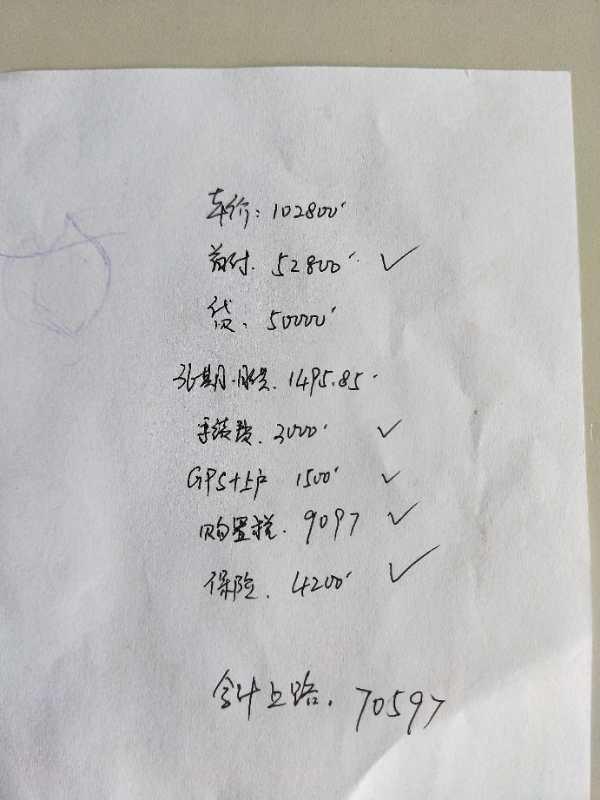 车价: 102800
首付. 52800 ✓
贷. 50000
36期.月供. 1495.85
手续费. 3000 ✓
GPS+上户 1500 ✓
购置税. 9097 ✓
保险. 4200 ✓
合计上路. 70597